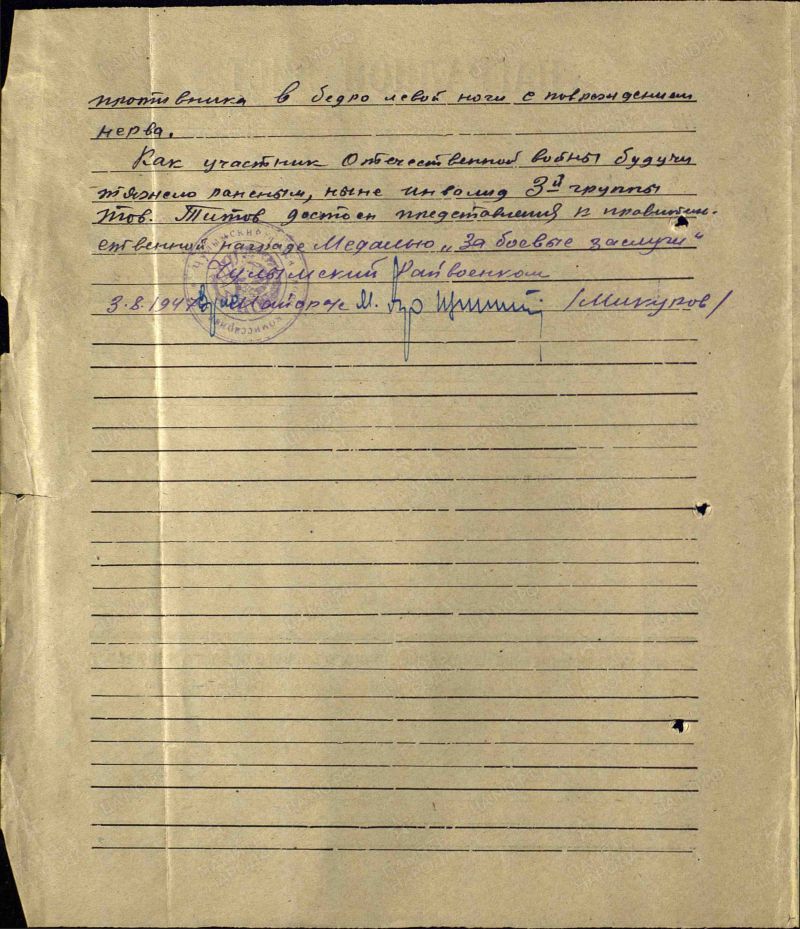 противника в бедро левой ноги с повреждением
нерва.
Как участник Отечественной войны будучи
тяжело раненым, ныне инвалид 3й группы
тов. Титов достоен представления к правитель-
ственной награде Медалью „За боевые заслуги"
Чулымский Райвоенком
3.8.1947г Майор М. /Микупов/